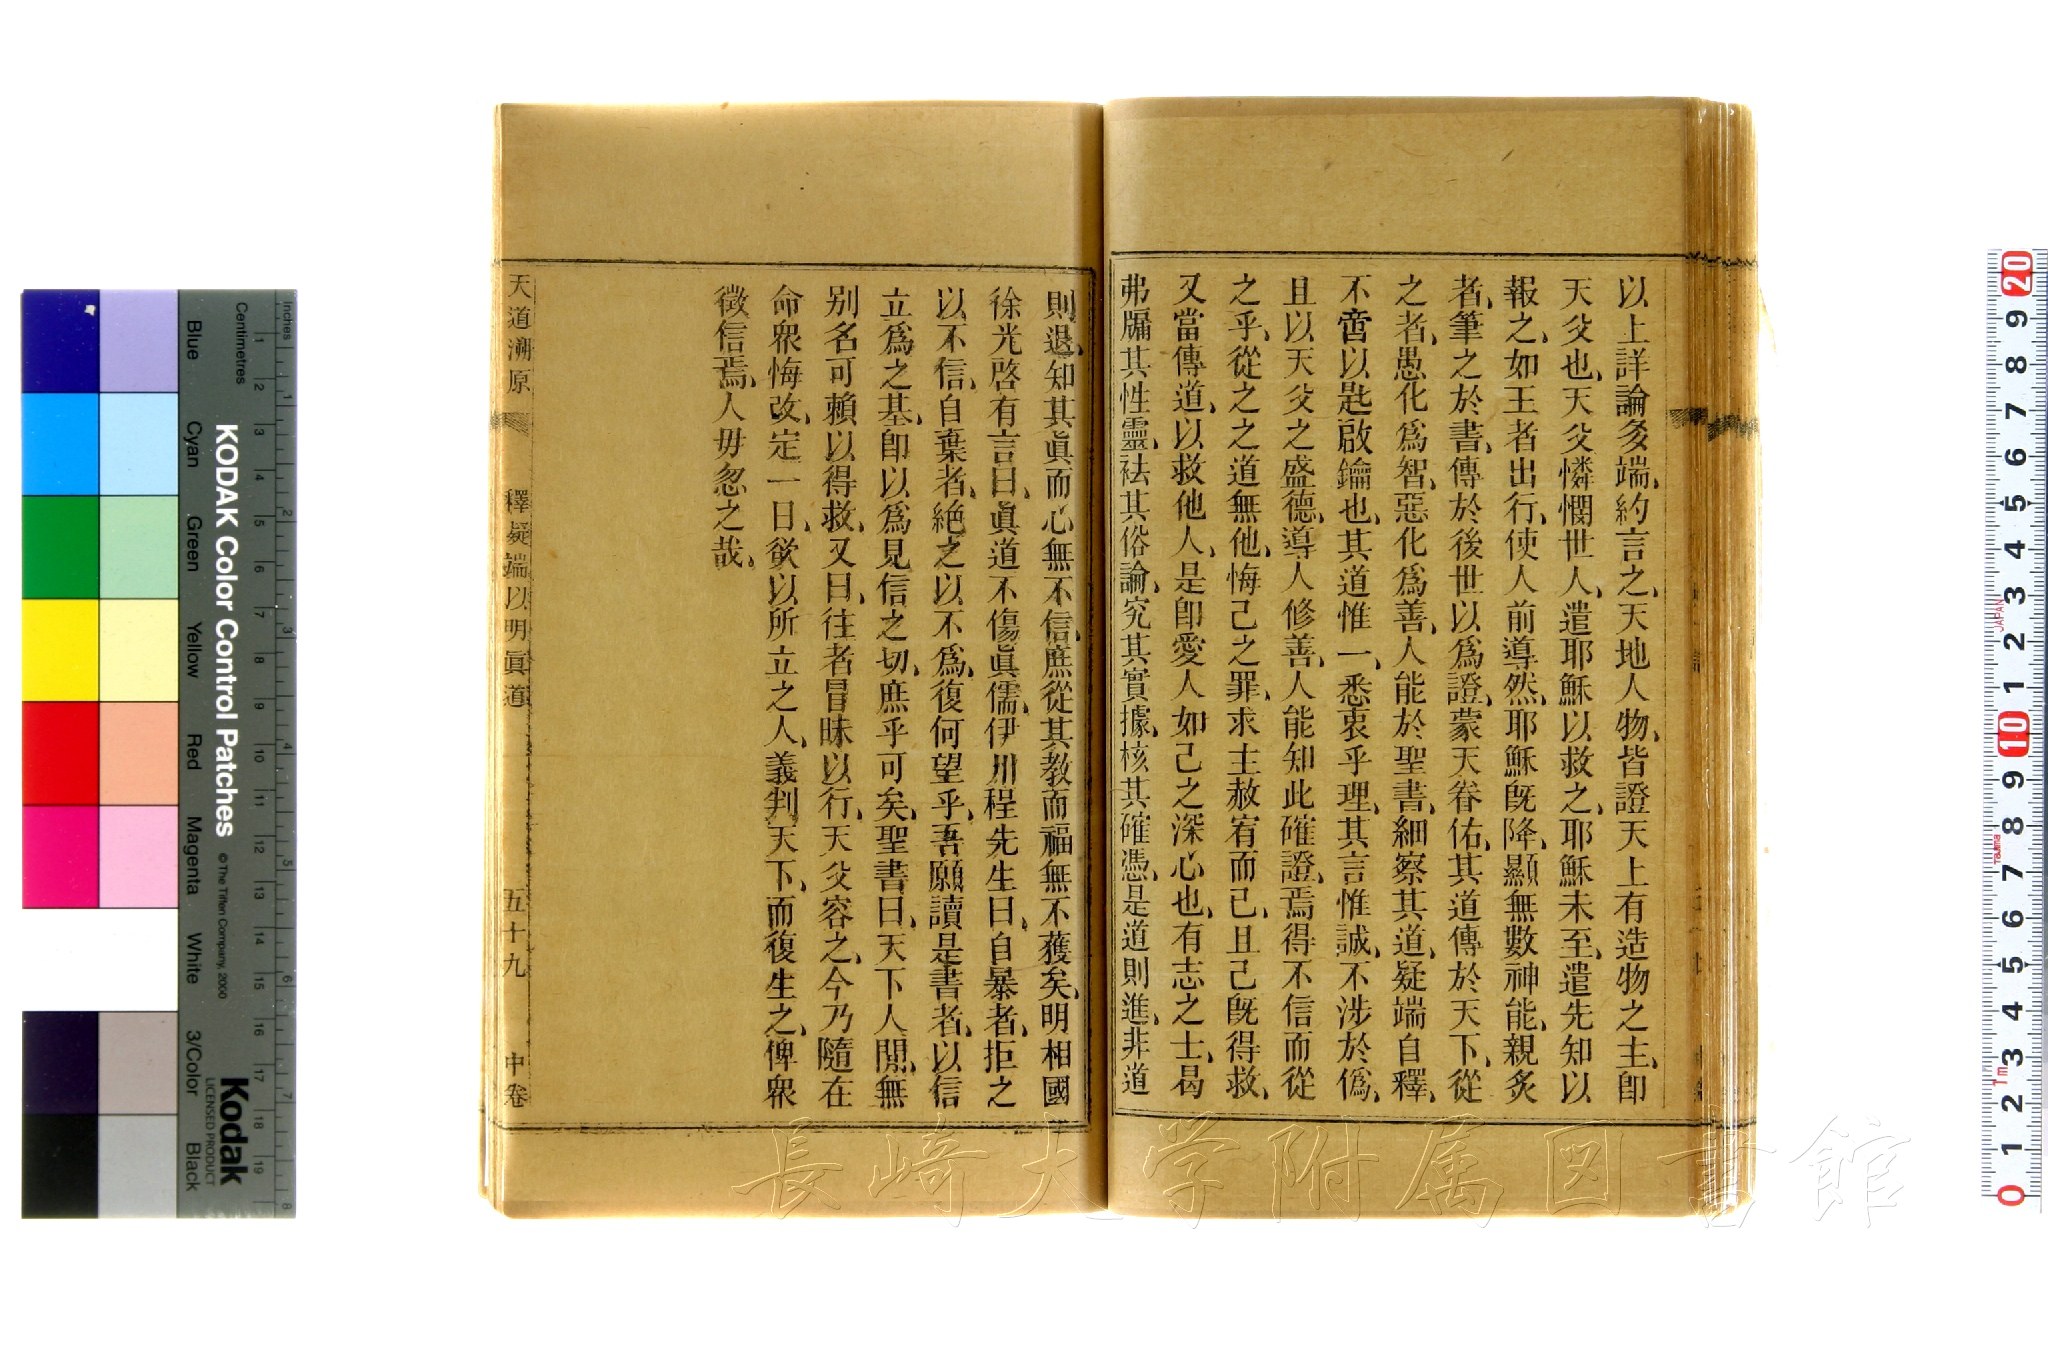 以上詳論多端、約言之、天地人物、皆證天上有造物之主、卽
天父也、天父憐憫世人、遣耶穌以救之、耶穌未至、遣先知以
報之、如王者出行、使人前導然、耶穌旣降、顯無數神能、親炙
者、筆之於書、傳於後世以爲證、蒙天眷佑、其道傳於天下、從
之者、愚化爲智、惡化爲善、人能於聖書、細察其道、疑端自釋、
不啻以匙啟鑰也、其道惟一、悉衷乎理、其言惟誠、不涉於僞、
且以天父之盛德、導人修善、人能知此確證、焉得不信而從
之乎、從之之道無他、悔己之罪、求主赦宥而已、且己旣得救、
又當傳道、以救他人、是卽愛人如己之深心也、有志之士、曷
弗牖其性靈、袪其俗論、究其實據、核其確憑、是道則進、非道
則退、知其眞而心無不信、庶從其教而福無不獲矣、明相國
徐光啓有言曰、眞道不傷眞儒、伊川程先生曰、自暴者、拒之
以不信、自棄者、絶之以不爲、復何望乎、吾願讀是書者、以信
立爲之基、卽以爲見信之切、庶乎可矣、聖書曰、天下人間、無
别名可賴以得救、又曰、往者冒昧以行、天父容之、今乃隨在
命衆悔改、定一日、欲以所立之人、義判天下、而復生之、俾衆
徵信焉、人毋忽之哉、
天道溯原
釋疑端以明眞道
五十九
中卷
長崎大学附属図書館
KODAK Color Control Patches
© The Tiffen Company, 2000
Kodak
LICENSED PRODUCT
Inches
Centimetres
Blue
Cyan
Green
Yellow
Red
Magenta
White
3/Color
Black
1 2 3 4 5 6 7 8 9 10 11 12 13 14 15 16 17 18 19
1 2 3 4 5 6 7 8
20 9 8 7 6 5 4 3 2 1 10 9 8 7 6 5 4 3 2 1 0
JAPAN
Tajima